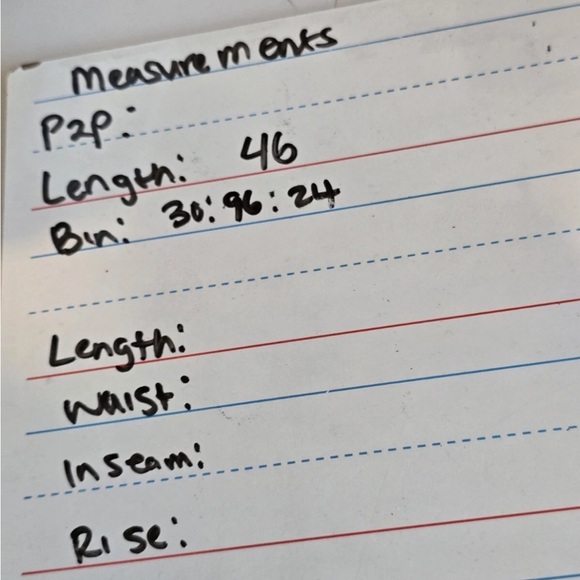 Measurements
P2P:
Length: 46
Bin: 30:96:24
Length:
Waist:
Inseam:
Rise: